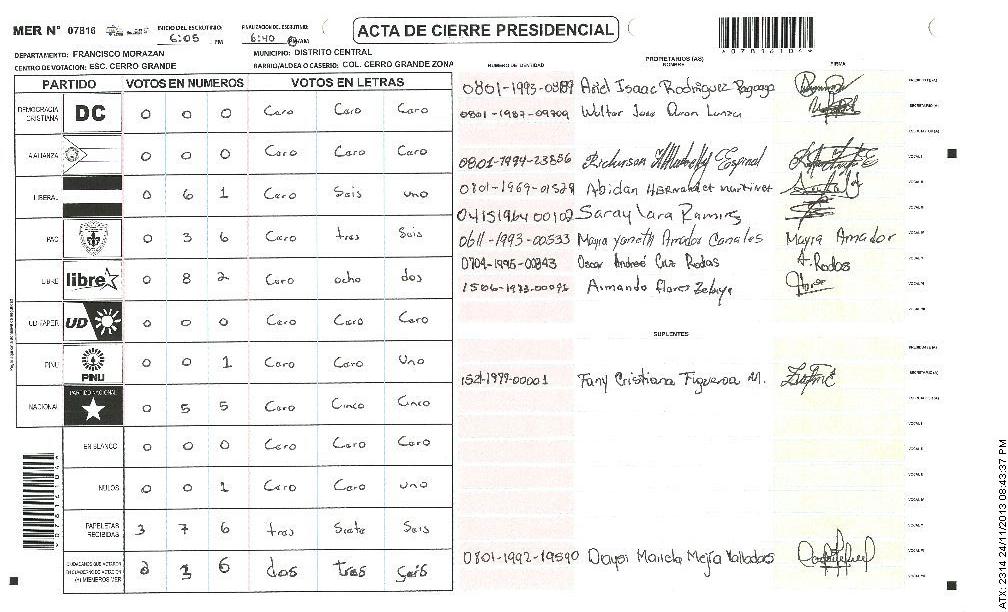 MER N° 07816 INICIO DEL ESCRUTINIO: 6:05 PM FINALIZACION DEL ESCRUTINIO: 6:40 PM/AM ACTA DE CIERRE PRESIDENCIAL 07816104
DEPARTAMENTO: FRANCISCO MORAZAN MUNICIPIO: DISTRITO CENTRAL
CENTRO DE VOTACION: ESC. CERRO GRANDE BARRIO/ALDEA O CASERIO: COL. CERRO GRANDE ZONA
PARTIDO VOTOS EN NUMEROS VOTOS EN LETRAS
DEMOCRACIA CRISTIANA DC 0 0 0 Cero Cero Cero
0 0 0 Cero Cero Cero
LIBERAL 0 6 1 Cero Seis uno
PAC 0 3 6 Cero tres Seis
LIBRE libre 0 8 2 Cero ocho dos
UD FAPER UD 0 0 0 Cero Cero Cero
PINU PINU 0 0 1 Cero Cero Uno
NACIONAL PARTIDO NACIONAL 0 5 5 Cero Cinco Cinco
EN BLANCO 0 0 0 Cero Cero Cero
NULOS 0 0 1 Cero Cero uno
PAPELETAS RECIBIDAS 3 7 6 tres Siete Seis
CIUDADANOS QUE VOTARON 2 3 6 dos tres Seis
PROPIETARIOS (AS)
NUMERO DE IDENTIDAD NOMBRE FIRMA
Ariel Isaac Rodriguez
0801-1987-09709 Walter Jose
0801-1994-23856 Espinal
0801-1969-01529 Abidan Hernandez Martinez
0415196400102 Saray Lara Ramires
0611-1993-00533 Mayra Yaneth Amador Canales Mayra Amador
0704-1995-00843 Oscar Andreé Cruz Rodas A. Rodas
Armando Flores Zelaya
SUPLENTES
1521-1979-00001 Fany Cristiana Figueroa M.
0801-1992-19590 Daysi Mariela Mejia Valladas
ATX: 2314 24/11/2013 08:43:37 PM